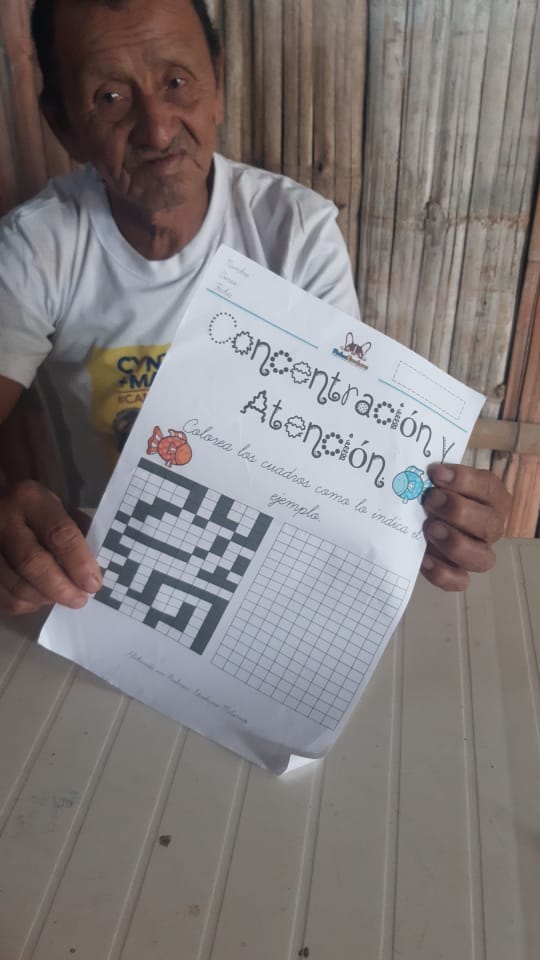 Nombre
Curso
Fecha
Concentración y
Atención
Colorea los cuadros como lo indica el
ejemplo.
CYN
+MA
#CA